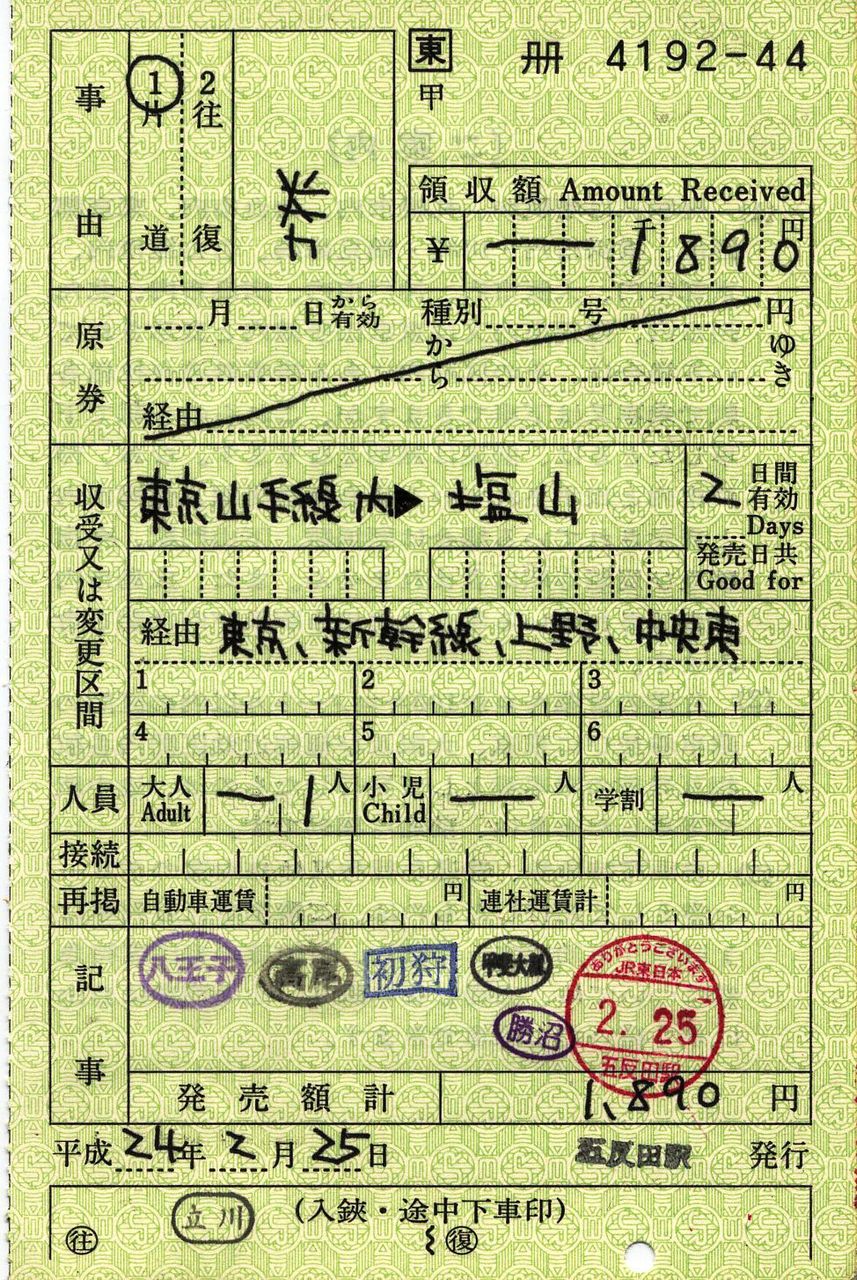 東 冊 4192-44
甲
事由
①片道
2往復
領収額 Amount Received
¥ 千 1890 円
原券
月 日から有効 種別 号 円
から ゆき
経由
収受又は変更区間
東京山手線内▶塩山
2日間有効
Days
発売日共
Good for
経由 東京、新幹線、上野、中央東
1 2 3
4 5 6
人員 大人 Adult 1人 小児 Child 人 学割 人
接続
再掲 自動車運賃 円 連社運賃計 円
記事
八王子 高尾 初狩 甲斐大和
勝沼
ありがとうございます
JR東日本
2. 25
五反田駅
発売額計 1,890 円
平成24年2月25日 五反田駅 発行
立川 (入鋏・途中下車印)
往 復